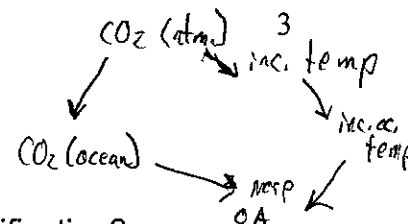 CO2 (atm.) 3
inc. temp
inc. oc. temp
CO2 (ocean)
OA